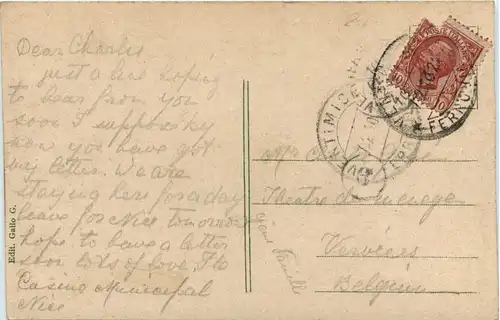 Dear Charlie
just a line hoping
to hear from you
soon I suppose by
now you have got
my letter. We are
staying here for a day
leave for Nice tomorrow
hope to have a letter
soon lots of love. Flo
Casino Municipal
Nice
Edit. Gallo G.
VENTIMIGLIA
FERROVIA
10
Mr
Theatre du
Verviers
Belgium